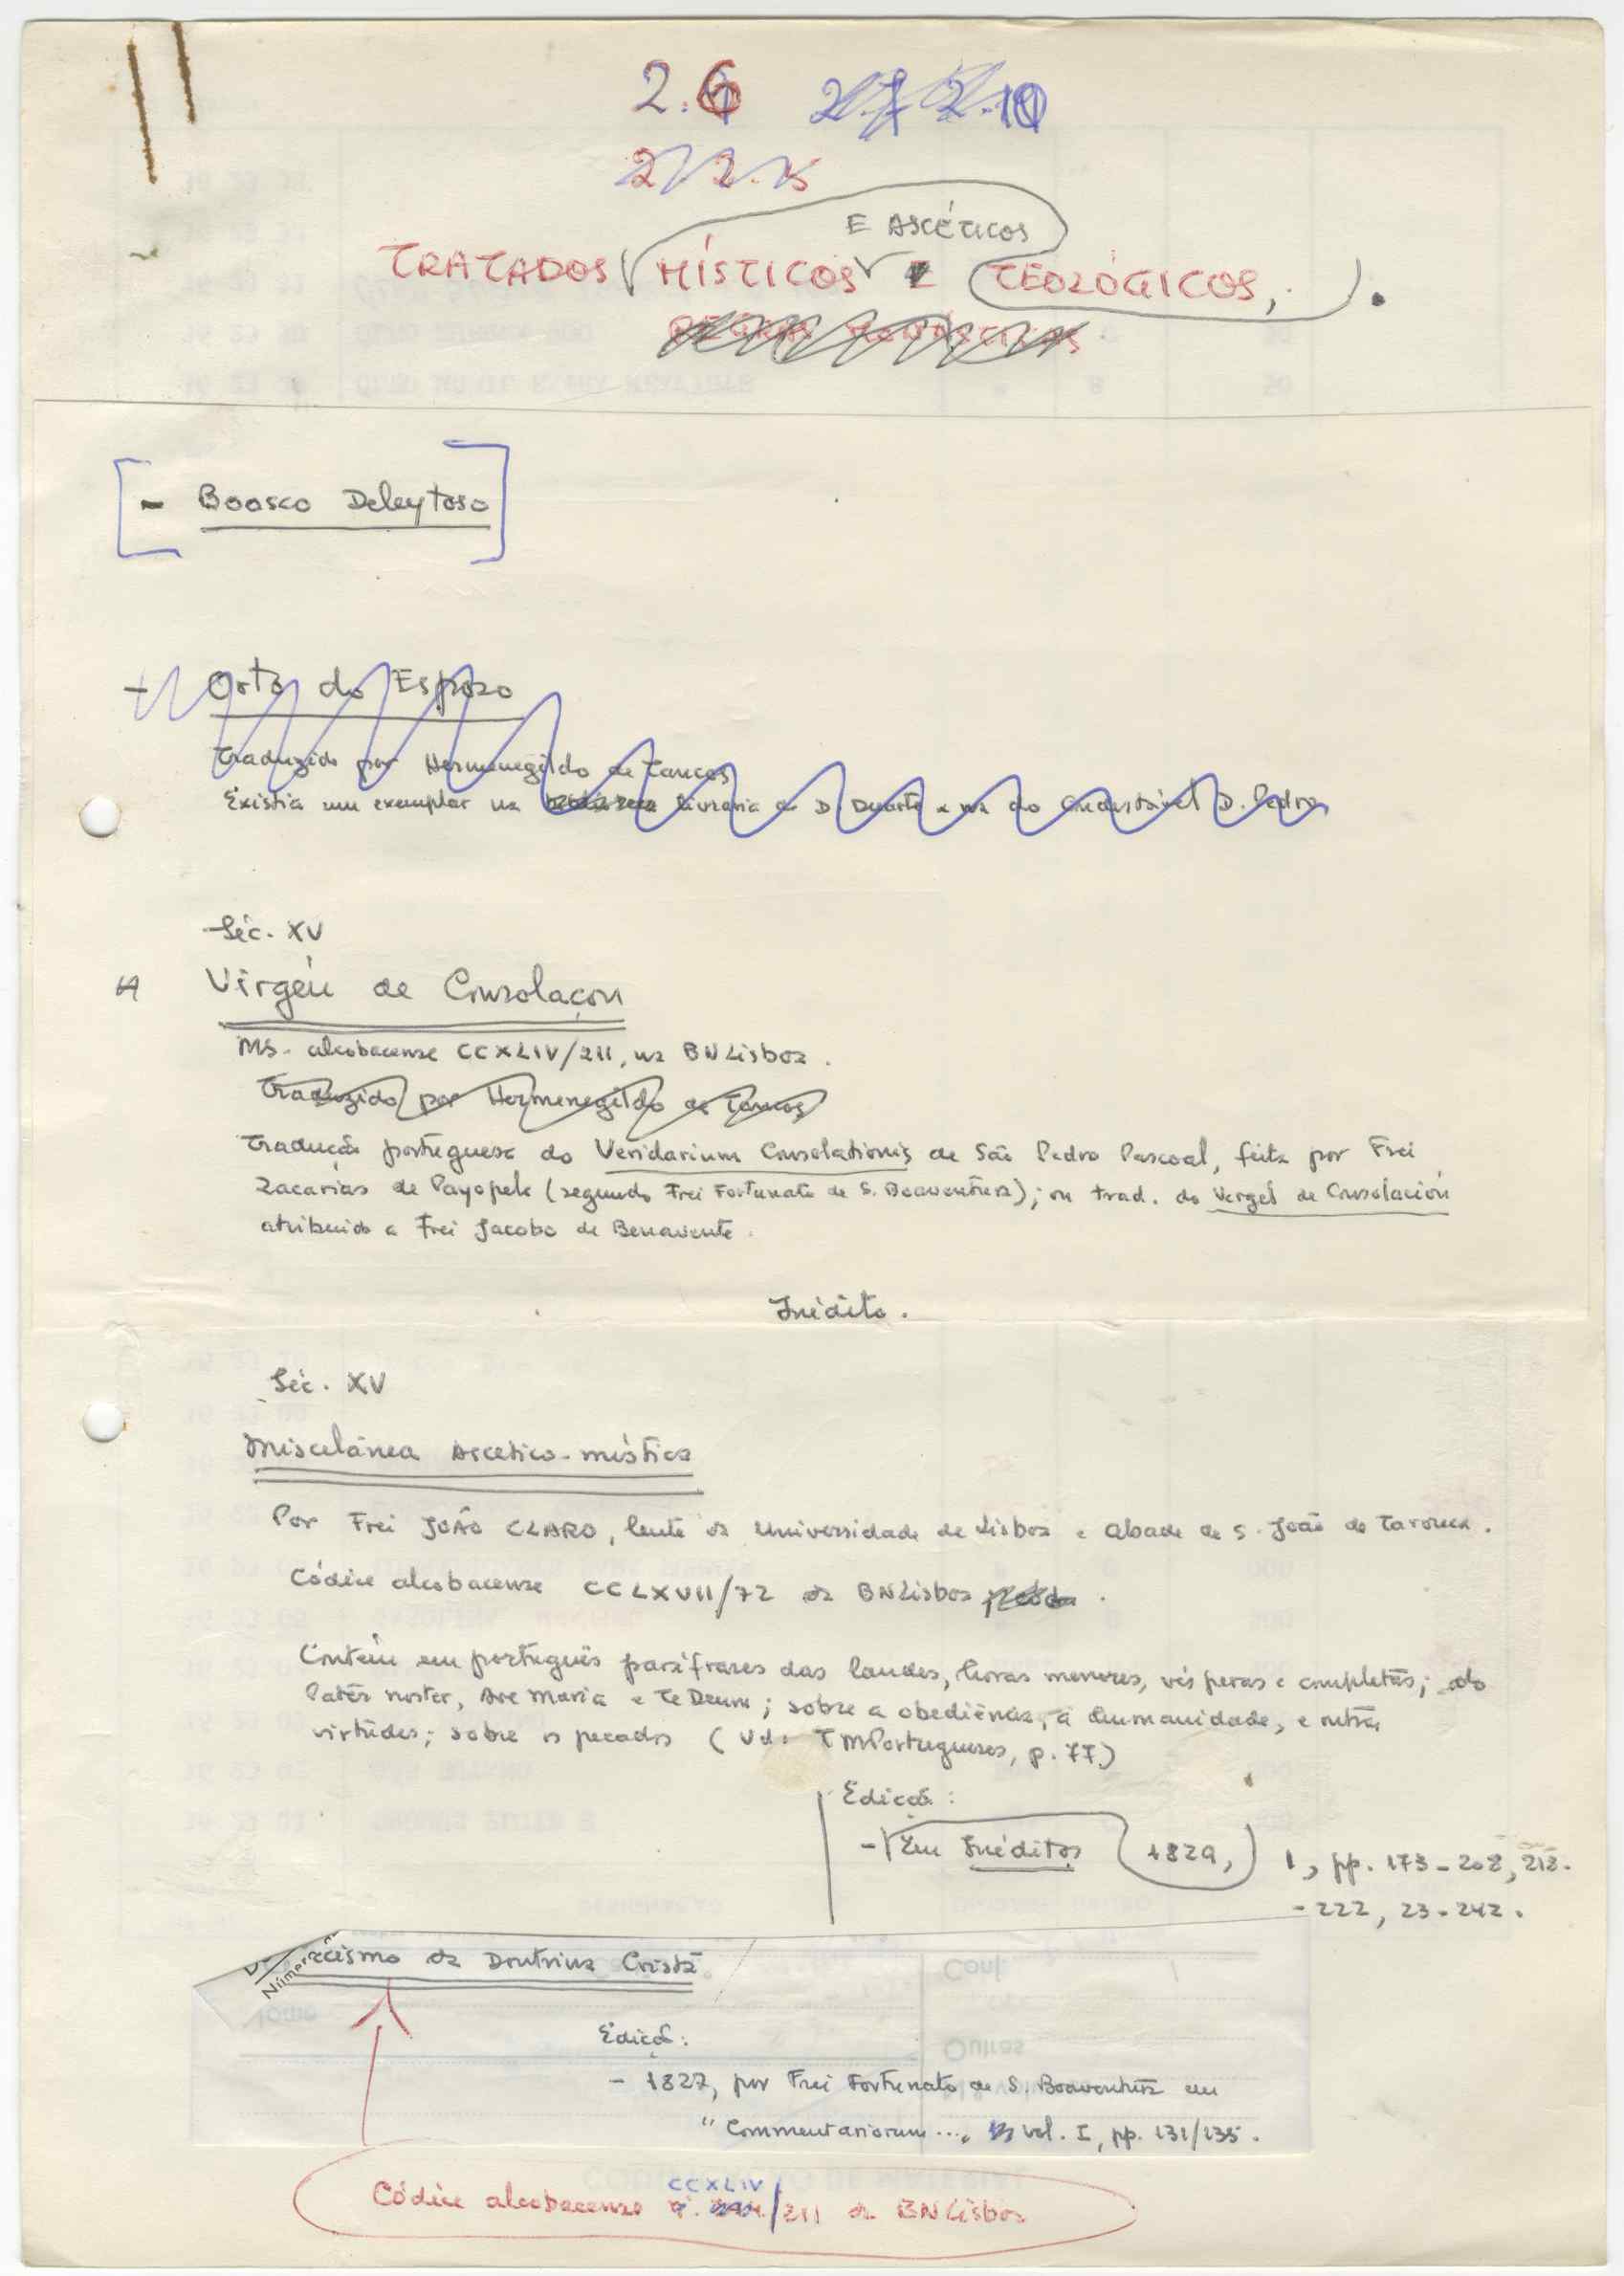 2.6 2.7 2.10
2.2.
E ASCÉTICOS
TRATADOS MÍSTICOS E TEOLÓGICOS, .
REGRAS MONÁSTICAS
- Boosco Deleytoso
- Orto do Esposo
Traduzido por Hermenegildo de Tancos
Existia um exemplar na livraria de D. Duarte e na do Condestável D. Pedro
Séc. XV
Virgéu de Consolaçon
MS. alcobacense CCXLIV/211, na BNLisboa.
Traduzido por Hermenegildo de Tancos
Tradução portuguesa do Veridarium Consolationis de São Pedro Pascoal, feita por Frei
Zacarias de Payopele (segundo Frei Fortunato de S. Boaventura); ou trad. do Vergel de Consolación
atribuido a Frei Jacobo de Benavente.
Inédito.
Séc. XV
Miscelânea Ascético-mística
Por Frei JOÃO CLARO, lente da Universidade de Lisboa e Abade de S. João de Tarouca.
Códice alcobacense CCLXVII/72 da BNLisboa .
Contém em português paráfrases das laudes, horas menores, vésperas e completas; do
Pater noster, Ave Maria e Te Deum; sobre a obediência, a humanidade, e outras
virtudes; sobre os pecados (Vd. TMPortugueses, p. 77)
Edição:
- Em Inéditos (1829,) 1, pp. 173-208, 218-
-222, 23-242.
Númer
ecismo da Doutrina Cristã
Nome
Cont.
Outras
Edição:
- 1827, por Frei Fortunato de S. Boaventura em
"Commentariorum ..., vol. I, pp. 131/135.
CCXLIV
Códice alcobacense /211 da BNLisboa